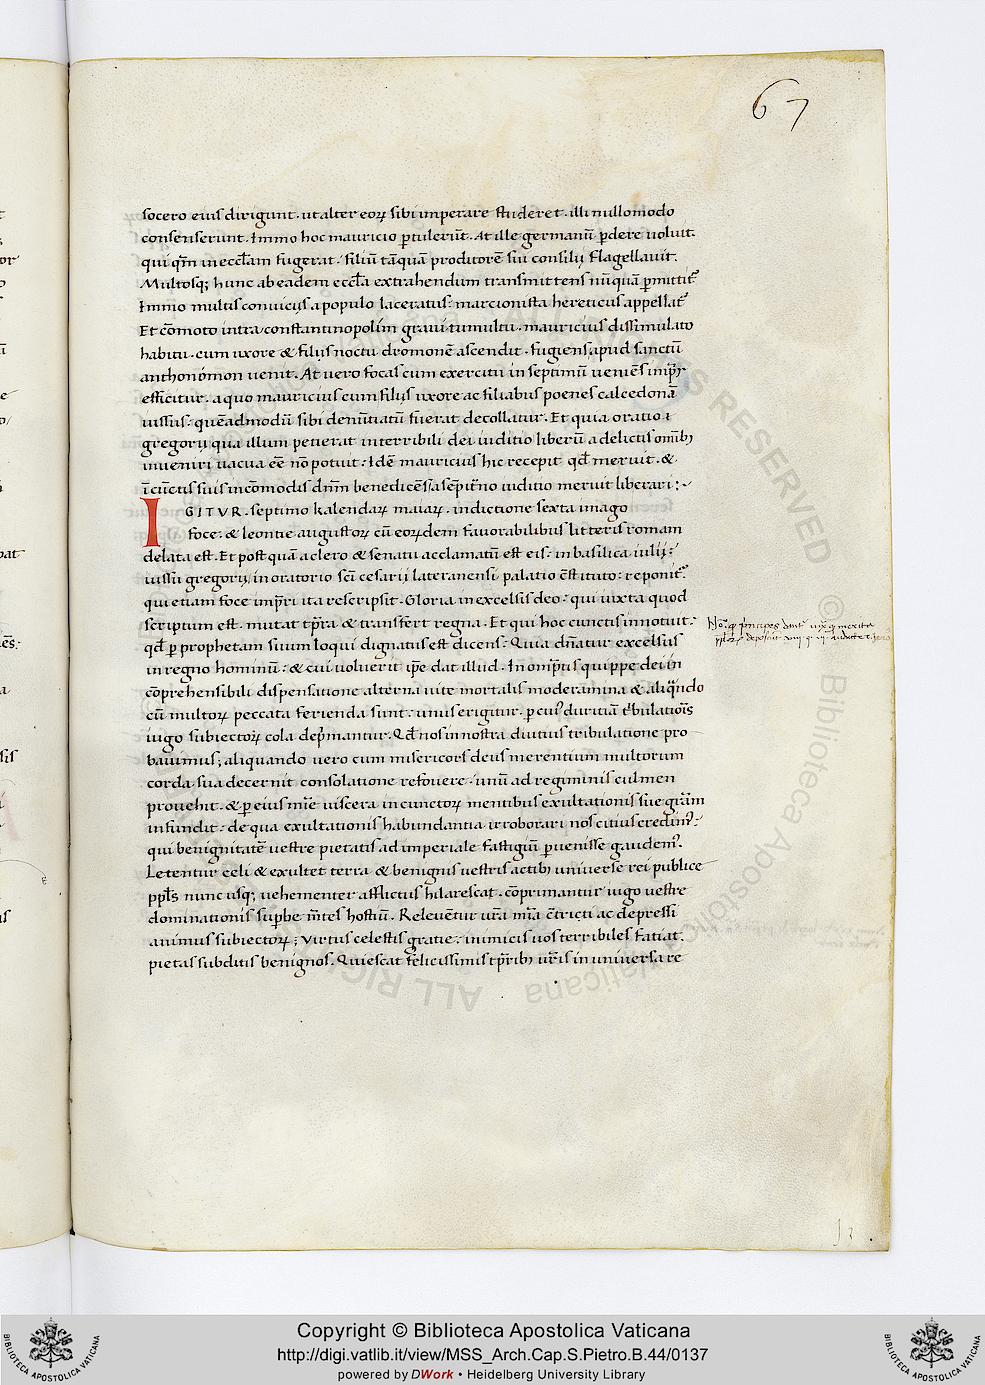 67
socero eius dirigunt. ut alter eoꝝ sibi imperare studeret. illi nullomodo
consenserunt. Immo hoc mauricio ꝑtulerūt. At ille germanū ꝑdere uoluit.
qui qm̄ in eccl̄am fugerat. filiū tāquā proditorē sui consilij flagellauit.
Multosq; hunc ab eadem eccl̄a extrahendum transmittens nūquā ꝑmittit᷑
Immo multis conuicijs a populo laceratus: marcionista hereticus appellat᷑
Et cōmoto intra constantinopolim graui tumultu. mauricius dissimulato
habitu. cum uxore & filijs noctu dromonē ascendit. fugiens apud sanctū
anthonomon uenit. At uero focas cum exercitu in septimū ueniēs imꝑr
efficitur. a quo mauricius cum filijs uxore ac filiabus poenes calcedonā
iussus: quēadmodū sibi denūtiatū fuerat decollatur. Et quia oratio i
gregorij qua illum petierat in terribili dei iuditio liberū a delictis om̄ibꝫ
inueniri uacua eē nō potuit: Idē mauricius hic recepit qd̄ meruit. &
ī cūctis suis incōmodis dn̄m benedicēs a sēpitēno iuditio meruit liberari:~
IGITVR. septimo kalendaꝝ maiaꝝ. indictione sexta imago
foce. & leontie augustoꝝ cū eoꝝdem fauorabilibus litteris romam
delata est. Et post quā a clero & senatu acclamatū est eis: in basilica iulij:
iussu gregorij, in oratorio sc̄i cesarij lateranensi palatio cōstituto: reponit᷑.
qui etiam foce imꝑri ita rescripsit. Gloria in excelsis deo: qui iuxta quod
scriptum est. mutat tp̄ra & transfert regna. Et qui hoc cunctis innotuit:
qd̄ ꝑ prophetam suum loqui dignatus est dicens: Quia dn̄atur excelsus
in regno hominū: & cui uoluerit ip̄e dat illud. In omīpn̄tis quippe dei in
cōprehensibili dispensatione alterna uite mortalis moderamina & aliqn̄do
cū multoꝝ peccata ferienda sunt: unus erigitur. ꝑ cuiꝰ duritiā tribulatiōis
iugo subiectoꝝ cola dep̄mantur. Qd̄ nos in nostra diutius tribulatione pro
bauimus; aliquando uero cum misericors deus merentium multorum
corda sua decernit consolatione refouere. unū ad regiminis culmen
prouehit. & ꝑ eius mīe uiscera in cunctoꝝ mentibus exultationis sue grām
infundit: de qua exultationis habundantia ī roborari nos citius credimꝰ:
qui benignitatē uestre pietatis ad imperiale fastigiū ꝑuenisse gaudemꝰ.
Letentur celi & exultet terra & benignus uestris actibꝫ uniuerse rei publice
pp̄ls nunc usq; uehementer afflictus hilarescat. cōprimantur iugo uestre
dominationis supbe m̄tes hostiū. Releuētur ur̄a mīa cōtricti ac depressi
animus subiectoꝝ; Virtus celestis gratie: inimicis uos terribiles fatiat.
pietas subditis benignos. Quiescat felicissimis tp̄ribꝫ ur̄is in uniuersa re
13
Copyright © Biblioteca Apostolica Vaticana
http://digi.vatlib.it/view/MSS_Arch.Cap.S.Pietro.B.44/0137
powered by DWork • Heidelberg University Library